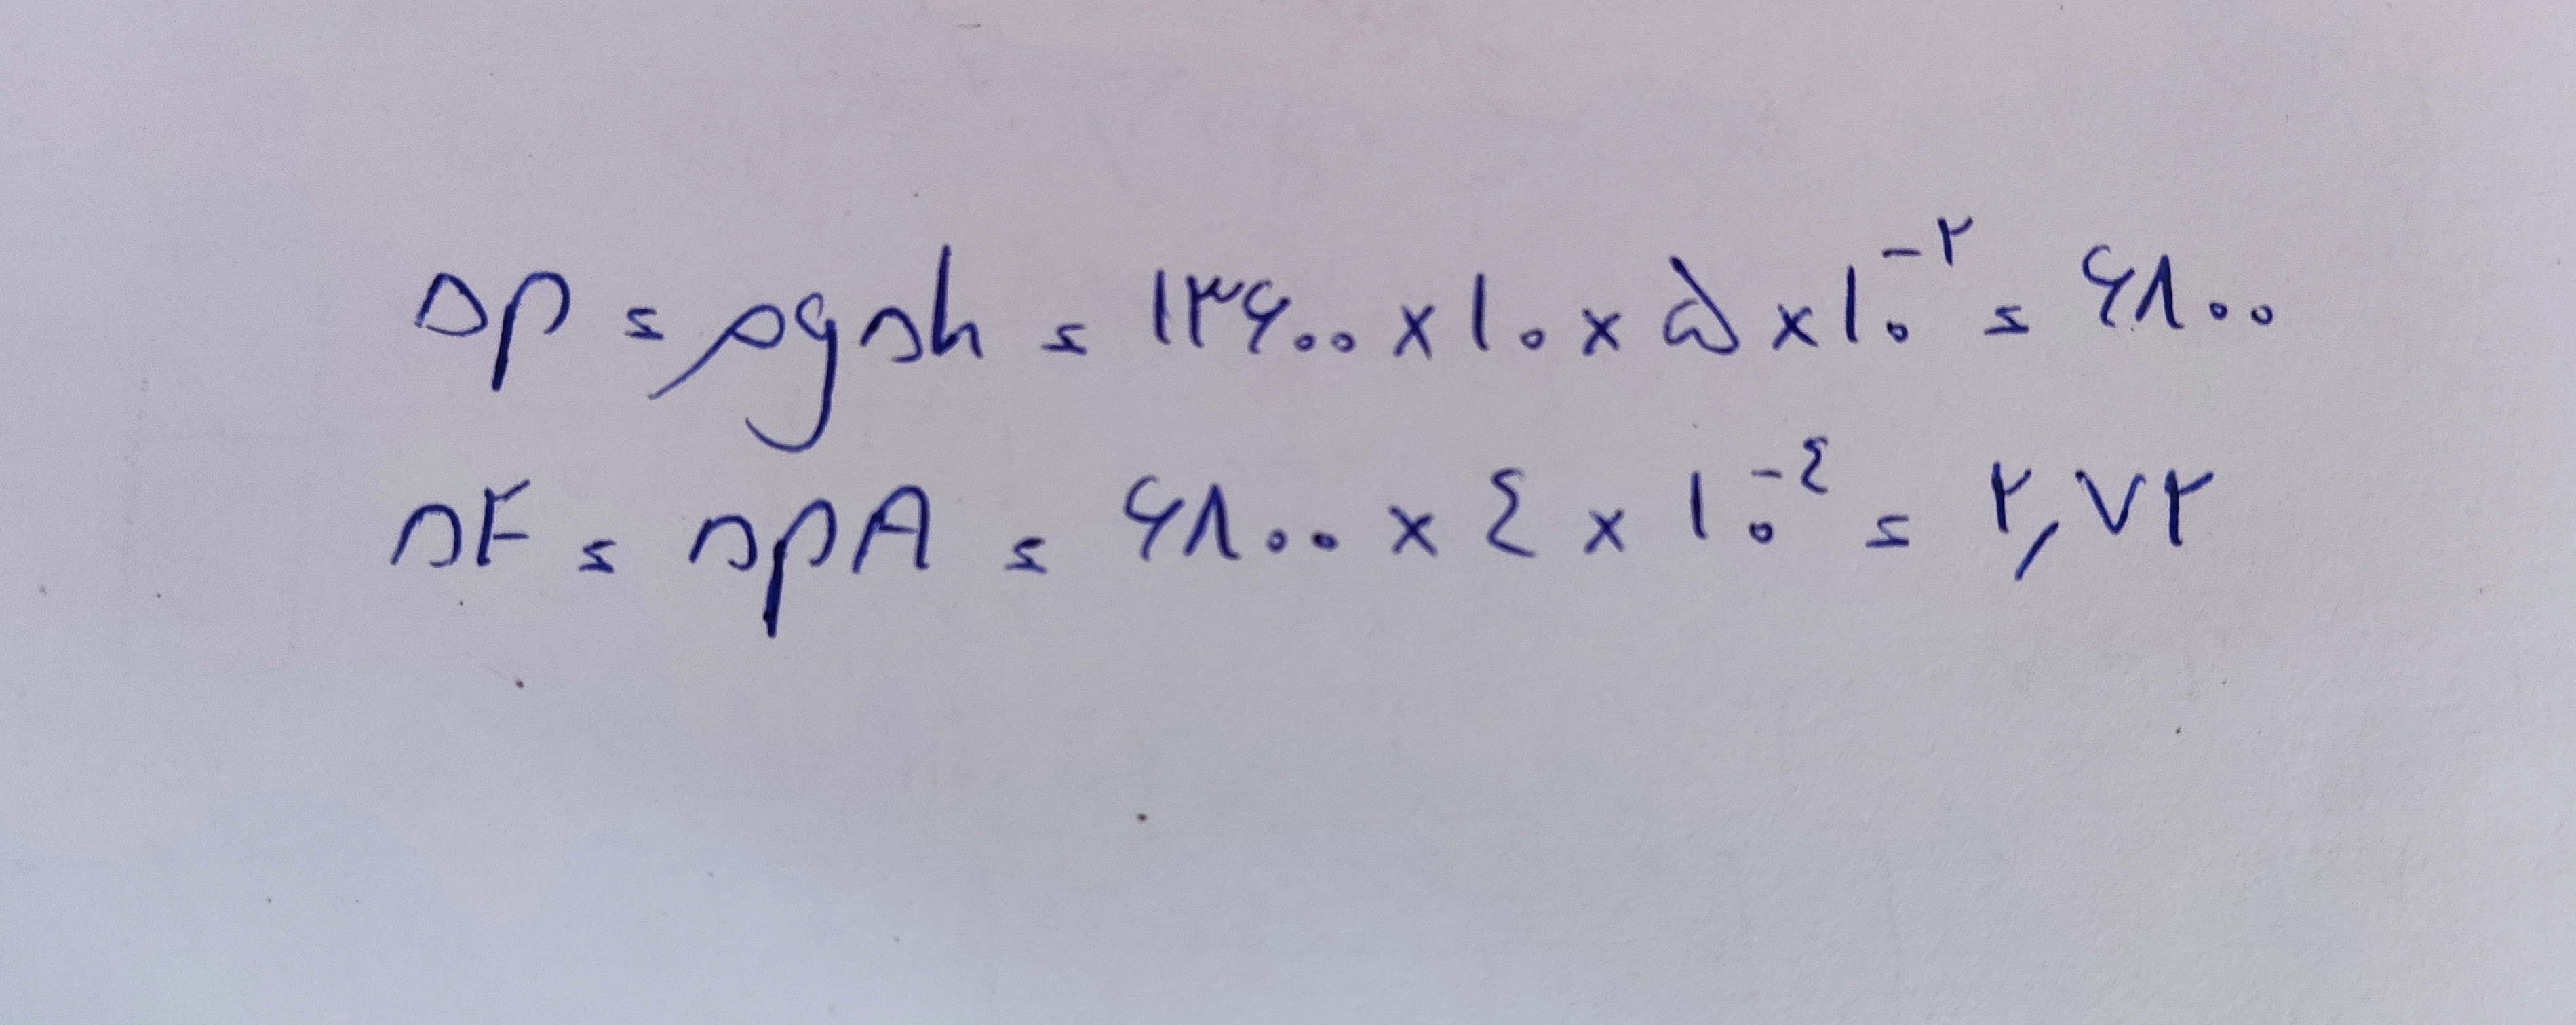 ΔP = ρgΔh = ۱۳۶۰۰ × ۱۰ × ۵ × ۱۰^-۲ = ۶۸۰۰
ΔF = ΔPA = ۶۸۰۰ × ٤ × ۱۰^-٤ = ۲,۷۲